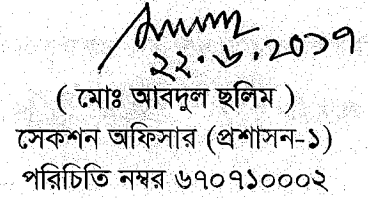 ২২.৬.২০১৭
( মোঃ আবদুল ছলিম )
সেকশন অফিসার (প্রশাসন-১)
পরিচিতি নম্বর ৬৭০৭১০০০২